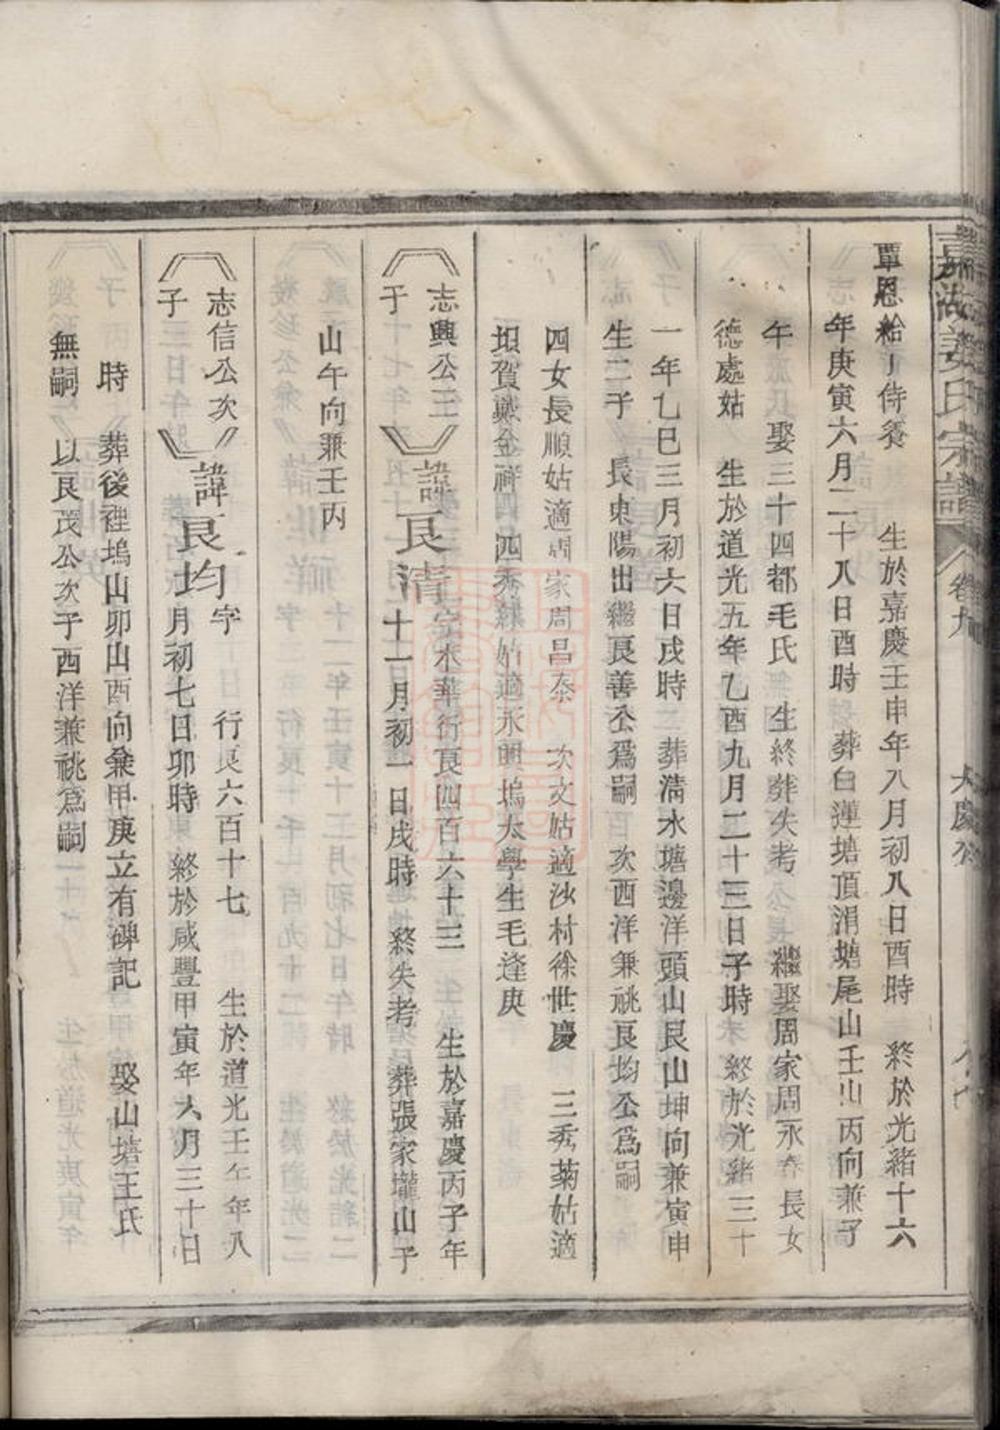 嘉湖姜氏宗譜 卷九 大慶公
覃恩給丁侍養 生於嘉慶壬申年八月初八日酉時 終於光緒十六
年庚寅六月二十八日酉時 葬白蓮塘頂涓塘尾山壬山丙向兼子
午 娶三十四都毛氏 生終葬失考 繼娶周家周永春長女
德處姑 生於道光五年乙酉九月二十三日子時 終於光緒三十
一年乙巳三月初六日戌時 葬滿水塘邊洋頭山艮山坤向兼寅申
生二子 長東陽出繼良善公為嗣 次西洋兼祧良均公為嗣
四女長順姑適周家周昌泰 次文姑適沙村徐世慶 三秀菊姑適
垻賀龔金祥 四秀綠姑適永興塢太學生毛逢庚
志興公三子
諱良清 字永華行良四百六十三 生於嘉慶丙子年
十一月初一日戌時 終失考 葬張家壠山子
山午向兼壬丙
志信公次子
諱良均 字 行良六百十七 生於道光壬午年八
月初七日卯時 終於咸豐甲寅年六月三十日
時 葬後裡塢山卯山酉向兼甲庚立有碑記 娶山塘王氏
無嗣 以良茂公次子西洋兼祧為嗣